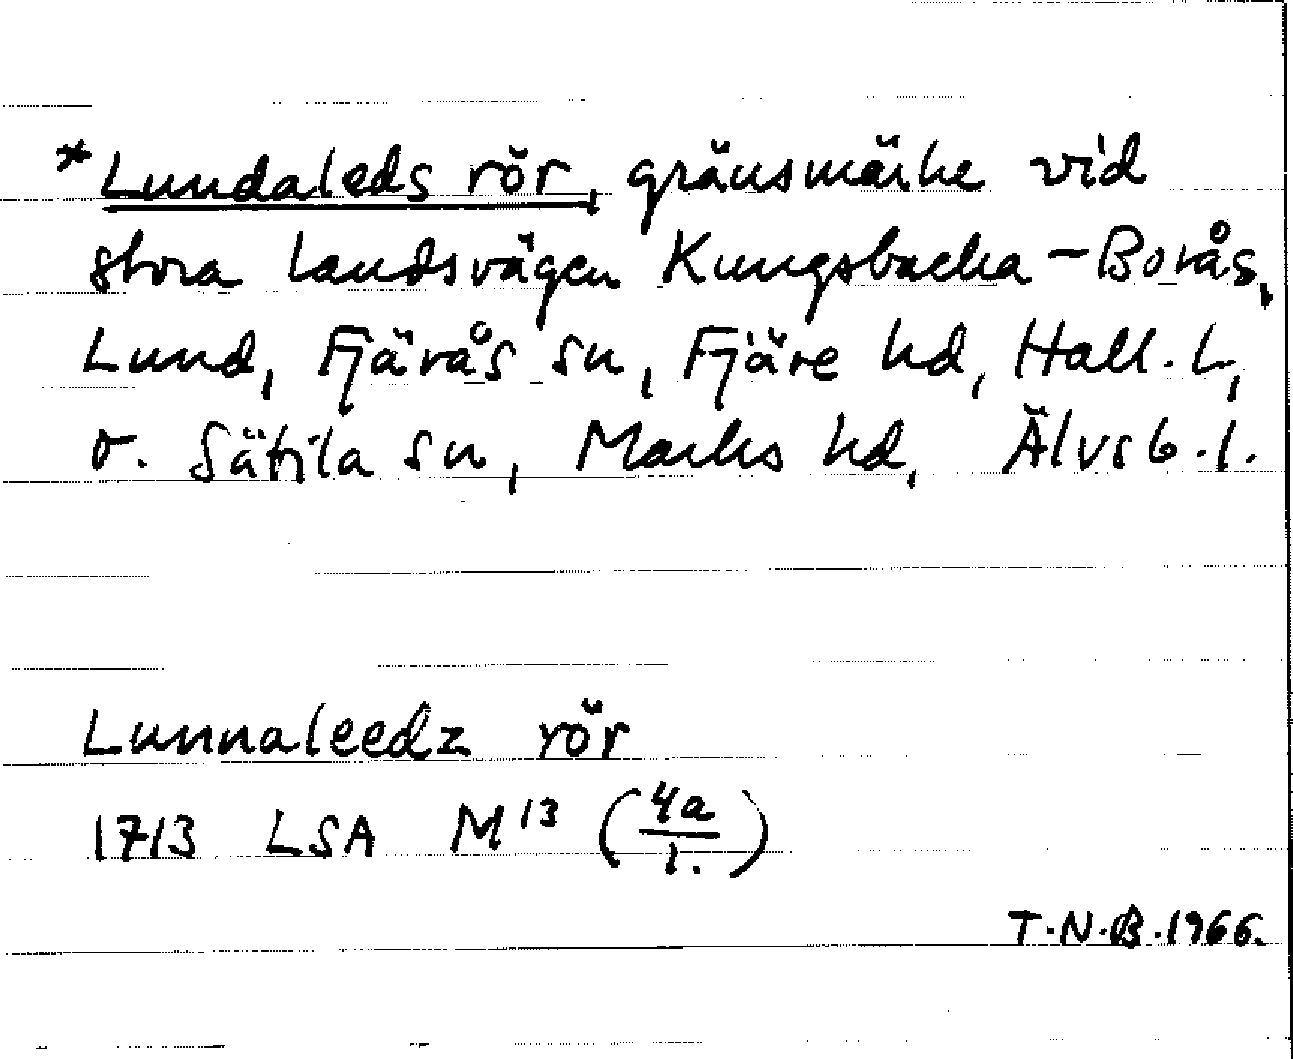 *Lundaleds rör, gränsmärke vid
stora landsvägen Kungsbacka - Borås,
Lund, Fjärås sn, Fjäre hd, Hall. l,
o. Sätila sn, Marks hd, Älvsb. l.
Lunnaleedz rör
1713 LSA M 13 (4a/1.)
T.N.B. 1966.